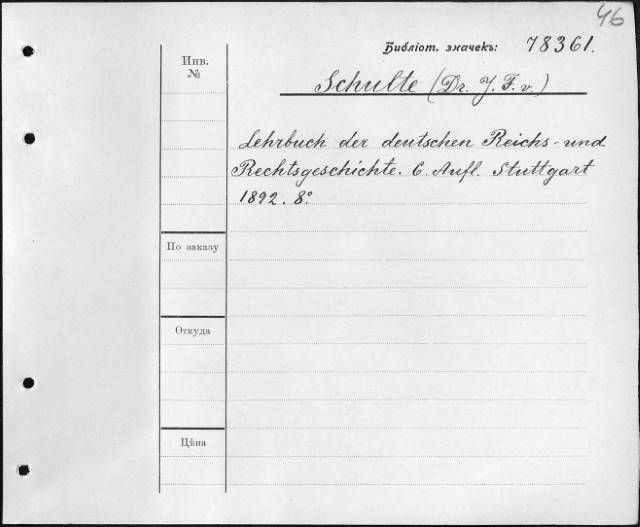 46
Библіот. значекъ: 78361.
Инв. №
Schulte (Dr. J. F. v.)
Lehrbuch der deutschen Reichs- und
Rechtsgeschichte. 6. Aufl. Stuttgart
1892. 8°
По заказу
Откуда
Цѣна